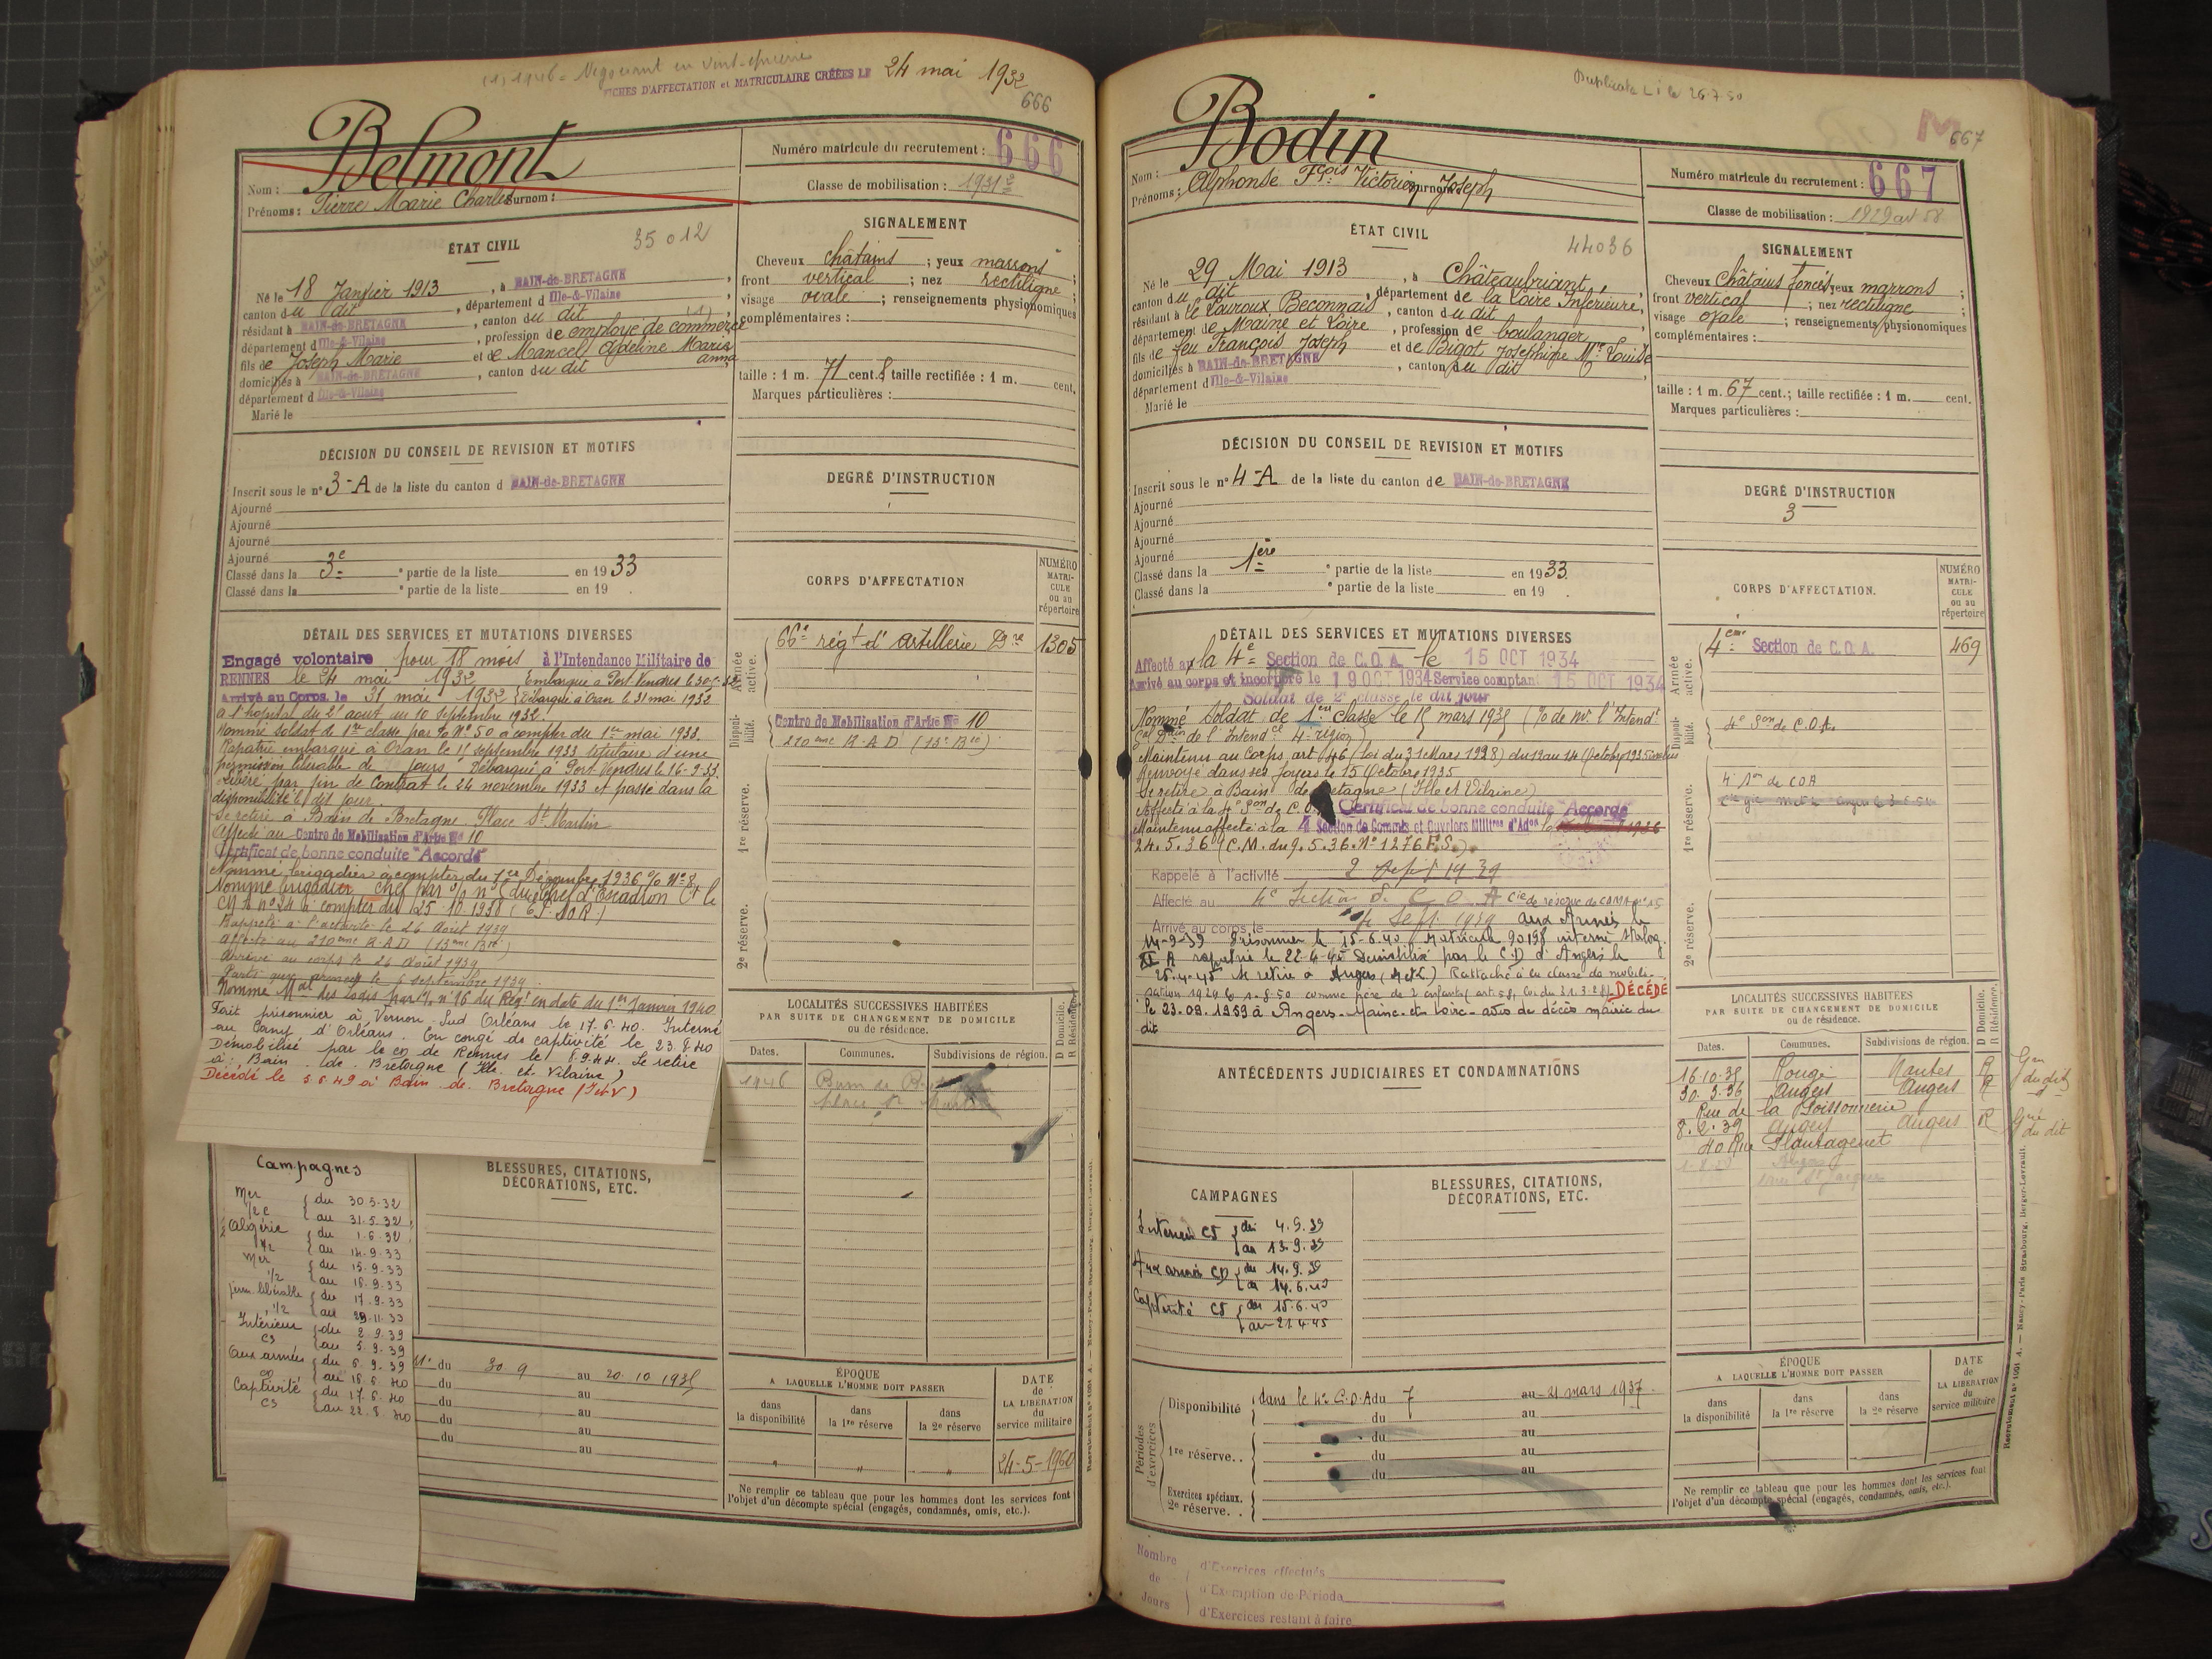 24 mai 1932
FICHES D'AFFECTATION et MATRICULAIRE CRÉÉES LE
666
Belmont
Nom :
Prénoms : Pierre Marie Charles Surnom :
Numéro matricule du recrutement : 666
Classe de mobilisation : 1931
ÉTAT CIVIL
35012
Né le 18 Janvier 1913, à BAIN-de-BRETAGNE,
canton du dit, département d Ille-&-Vilaine,
résidant à BAIN-de-BRETAGNE, canton du dit (1)
département d Ille-&-Vilaine, profession de employé de commerce
fils de Joseph Marie et de Marcel Adeline Maria anna
domiciliés à BAIN-de-BRETAGNE, canton du dit
département d Ille-&-Vilaine
Marié le
SIGNALEMENT
Cheveux châtains ; yeux marrons ;
front vertical ; nez rectiligne ;
visage ovale ; renseignements physionomiques
complémentaires :
taille : 1 m. 71 cent. ; taille rectifiée : 1 m. cent.
Marques particulières :
DÉCISION DU CONSEIL DE REVISION ET MOTIFS
Inscrit sous le n° 3-A de la liste du canton d BAIN-de-BRETAGNE
Ajourné
Ajourné
Ajourné
Ajourné
Classé dans la 3e partie de la liste en 1933
Classé dans la partie de la liste en 19 .
DEGRÉ D'INSTRUCTION
CORPS D'AFFECTATION
NUMÉRO MATRI-CULE ou au répertoire
DÉTAIL DES SERVICES ET MUTATIONS DIVERSES
Engagé volontaire pour 18 mois à l'Intendance Militaire de
RENNES le 24 mai 1932 Embarqué à Port Vendres le 30-5-32
Arrivé au Corps, le 31 mai 1932 Débarqué à Oran le 31 mai 1932
à l'hôpital du 2 août au 10 septembre 1932.
Nommé soldat de 1re classe par % N° 50 à compter du 1er mai 1933.
Rapatrié embarqué à Oran le 15 septembre 1933 titulaire d'une
permission libérable de jours Débarqué à Port Vendres le 16-9-33.
Libéré par fin de Contrat le 24 novembre 1933 et passé dans la
disponibilité le dit jour.
Se retire à Bain de Bretagne Place St Martin
Affecté au Centre de Mobilisation d'Artie N° 10
Certificat de bonne conduite "Accordé"
Nommé brigadier à compter du 1er Décembre 1936
Nommé brigadier chef par
à compter du 25.10.1938
Rappelé à l'activité le 26 Août 1939
Affecté au 210eme R.A.D (15eme Bie)
Arrivé au corps le 26 Août 1939
Parti aux armées le 6 septembre 1939.
Nommé Mal des Logis par % n° 16 du Régt en date du 1er Janvier 1940
Fait prisonnier à Vernon. Sud Orléans le 17.6.40. Interné
au Camp d'Orléans. En congé de captivité le 23.8.40
Démobilisé par le CD de Rennes le 8.9.44. Se retire
à : Bain . de . Bretagne (Ille et Vilaine)
Décédé le 5.6.49 à Bain de Bretagne (I & V)
Armée active.
66e régt d'artillerie
1305
Disponibilité.
Centre de Mobilisation d'Artie N° 10
210eme R.A.D (15e Bie)
1re réserve.
2e réserve.
LOCALITÉS SUCCESSIVES HABITÉES
PAR SUITE DE CHANGEMENT DE DOMICILE
ou de résidence.
D Domicile.
R Résidence.
Dates. Communes. Subdivisions de région.
1946
Campagnes
Mer 1/2 C du 30.5.32 au 31.5.32
Algérie 1/2 du 1.6.32 au 14.9.33
Mer 1/2 du 15.9.33 au 16.9.33
Perm. libérable 1/2 du 17.9.33 au 29.11.33
Intérieur CS du 2.9.39 au 5.9.39
Aux armées CD du 6.9.39 au 16.6.40
Captivité CS du 17.6.40 au 22.8.40
BLESSURES, CITATIONS,
DÉCORATIONS, ETC.
du 30.9 au 20.10 1935
du au
du au
du au
du au
ÉPOQUE
A LAQUELLE L'HOMME DOIT PASSER
dans la disponibilité
dans la 1re réserve
dans la 2e réserve
DATE de LA LIBÉRATION du service militaire
24-5-1960
Ne remplir ce tableau que pour les hommes dont les services font
l'objet d'un décompte spécial (engagés, condamnés, omis, etc.).
Duplicata
667
Bodin
Nom :
Prénoms : Alphonse Fçois Victorien Joseph
Numéro matricule du recrutement : 667
Classe de mobilisation : 1929
ÉTAT CIVIL
44036
Né le 29 Mai 1913, à Châteaubriant,
canton du dit, département de la Loire Inférieure,
résidant à Le Louroux Béconnais, canton du dit
département de Maine et Loire, profession de boulanger,
fils de feu François Joseph et de Bigot Joséphine Mie Louise
domiciliés à BAIN-de-BRETAGNE, canton du dit
département d Ille-&-Vilaine
Marié le
SIGNALEMENT
Cheveux Châtains foncés ; yeux marrons ;
front vertical ; nez rectiligne ;
visage ovale ; renseignements physionomiques
complémentaires :
taille : 1 m. 67 cent.; taille rectifiée : 1 m. cent.
Marques particulières :
DÉCISION DU CONSEIL DE REVISION ET MOTIFS
Inscrit sous le n° 4-A de la liste du canton de BAIN-de-BRETAGNE
Ajourné
Ajourné
Ajourné
Ajourné
Classé dans la 1ère partie de la liste en 1933.
Classé dans la partie de la liste en 19 .
DEGRÉ D'INSTRUCTION
3
CORPS D'AFFECTATION.
NUMÉRO MATRI-CULE ou au répertoire
DÉTAIL DES SERVICES ET MUTATIONS DIVERSES
Affecté à la 4e Section de C.O.A. le 15 OCT 1934
Arrivé au corps et incorporé le 19 OCT 1934 Service comptant 15 OCT 1934
Soldat de 2e classe, le dit jour
Nommé Soldat de 1ère classe le 15 mars 1935
Maintenu au Corps art 46 (loi du 31 Mars 1928)
Renvoyé dans ses foyers le 15 Octobre 1935
Se retire à Bain de Bretagne (Ille et Vilaine)
Affecté à la 4e Son de C.O.A. Certificat de bonne conduite "Accordé"
Maintenu affecté à la 4 Section de Commis et Ouvriers Militres d'Adon le
24.5.36 (C.M. du 9.5.36. N° 1276 F.S.)
Rappelé à l'activité 2 Sept 1939
Affecté au 4e Section d. C O A
Arrivé au corps le 4 Sept. 1939 aux Armées le
14-9-39 Prisonnier le 15-6-40 Matricule 90198 interné Stalag
XI A rapatrié le 22-4-45 Démobilisé par le C.D d'Angers le
25.4.45 Se retire à Angers (M&L) Rattaché à la classe de mobili-
sation 1929 le 1-8-50 comme père de 2 enfants (art. 58, loi du 31.3.28) DÉCÉDÉ
le 23.09.1959 à Angers - Maine-et-Loire - avis de décès mairie du
dit
Armée active.
4eme Section de C.O.A.
469
Disponibilité.
4e Son de C.O.A.
1re réserve.
4e Son de COA
2e réserve.
ANTÉCÉDENTS JUDICIAIRES ET CONDAMNATIONS
LOCALITÉS SUCCESSIVES HABITÉES
PAR SUITE DE CHANGEMENT DE DOMICILE
ou de résidence.
D Domicile.
R Résidence.
Dates. Communes. Subdivisions de région.
16.10.35 Rougé Nantes R
30.3.36 Angers Angers R
Rue de la Poissonnerie
8.2.39 Angers Angers R
40 Rue Plantagenet
CAMPAGNES
Intérieur CS du 4.9.39 au 13.9.39
Aux armées CD du 14.9.39 au 14.6.40
Captivité CS du 15.6.40 au 21.4.45
BLESSURES, CITATIONS,
DÉCORATIONS, ETC.
Périodes d'exercices
Disponibilité dans le 4e C.O.A du 7 au 21 mars 1937.
du au
du au
1re réserve. . du au
du au
Exercices spéciaux.
2e réserve. .
ÉPOQUE
A LAQUELLE L'HOMME DOIT PASSER
dans la disponibilité
dans la 1re réserve
dans la 2e réserve
DATE de LA LIBÉRATION du service militaire
Ne remplir ce tableau que pour les hommes dont les services font
l'objet d'un décompte spécial (engagés, condamnés, omis, etc.).
Nombre de Jours
d'Exercices effectués
d'Exemption de Période
d'Exercices restant à faire